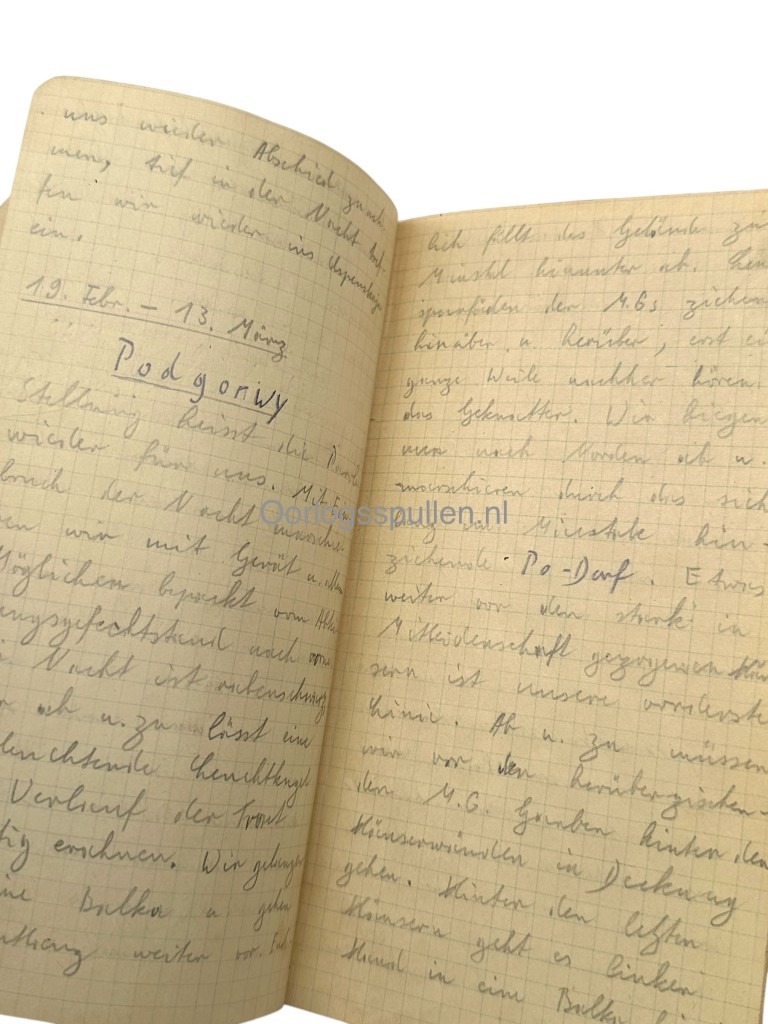 uns wieder Abschied zu neh
men, tief in der Nacht tref-
fen wir wieder ins
ein.
19. Febr. – 13. März
Podgoriwy
Stellung heisst die
wieder für uns. Mit Ein
bruch der Nacht marschie
en wir mit Gerät u. allem
Möglichen bepackt vom
ungsgefechtstand nach vorn
Nacht ist rabenschwarz
r ab u. zu lässt eine
leuchtende Leuchtkugel
Verlauf der Front
tig erahnen. Wir gelangen
ine Balka u gehen
entlang weiter vor.
lich fällt das Gelände zu
hinunter ab. Leu
spurfäden der M.Gs ziehen
hinüber u. herüber, erst ei
ganze Weile nachher hören
das Geknatter. Wir biegen
nun nach Norden ab u.
marschieren durch das sich
lang hin-
ziehende Po-Dorf. Etwas
weiter vor den stark in
Mitleidenschaft gezogenen Häu
sern ist unsere vorderste
Linie. Ab u. zu müssen
wir vor den herüberzischen-
den M.G. Garben hinter den
Häuserwänden in Deckung
gehen. Hinter den letzten
Häusern geht es linker
Hand in eine Balka
Oorlogsspullen.nl